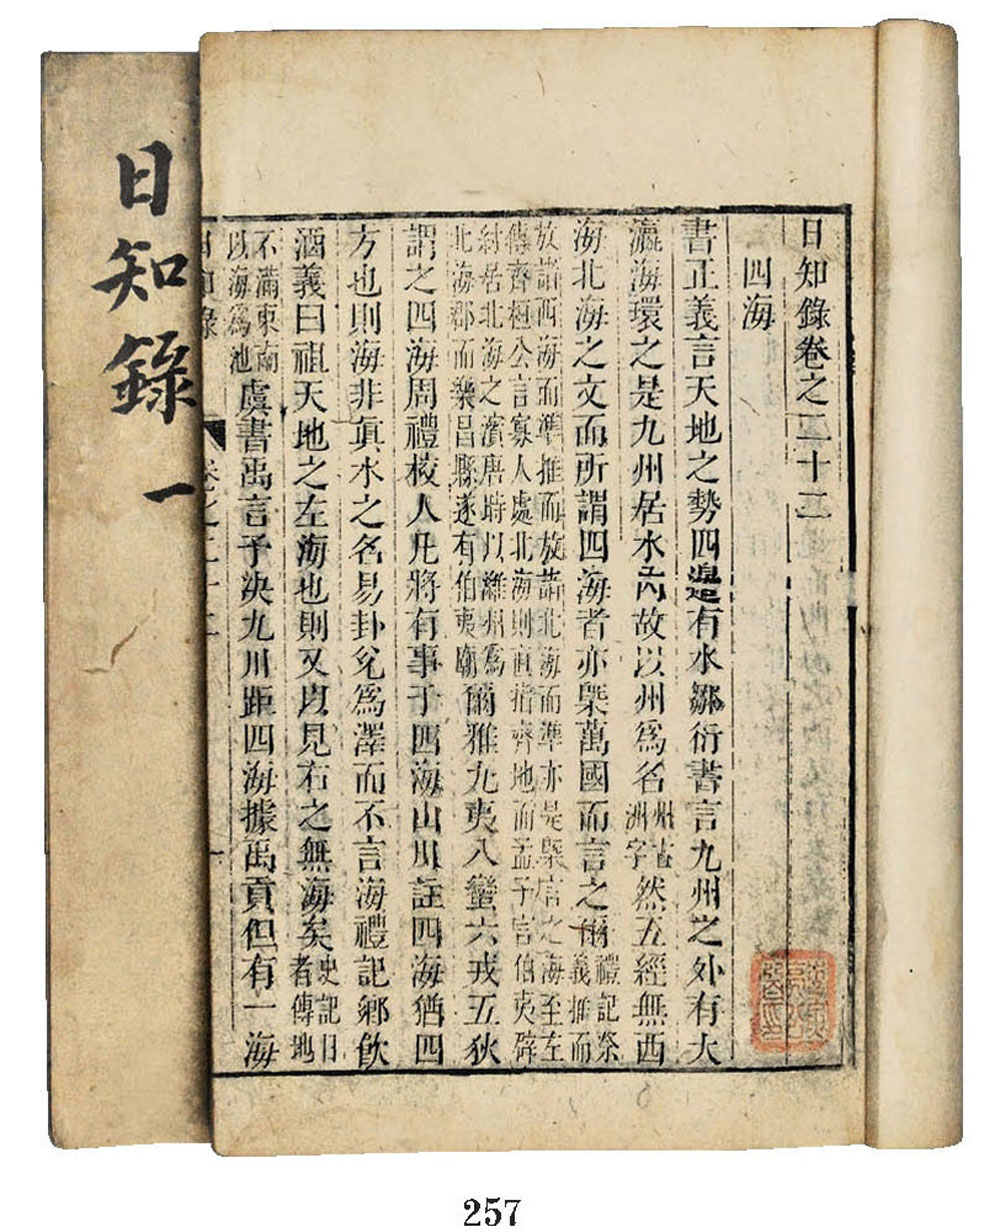 日知錄卷之二十二
四海
書正義言天地之勢四邊有水鄒衍書言九州之外有大
瀛海環之是九州居水內故以州爲名州古洲字然五經無西
海北海之文而所謂四海者亦槩萬國而言之爾禮記祭義推而
放諸西海而準推而放諸北海而準亦是槩言之海至左
傳齊桓公言寡人處北海則直指齊地而孟子言伯夷辟
紂居北海之濱唐時以濰州爲北海郡而樂昌縣遂有伯夷廟爾雅九夷八蠻六戎五狄
謂之四海周禮校人凡將有事于四海山川註四海猶四
方也則海非眞水之名易卦兌爲澤而不言海禮記鄉飲
酒義曰祖天地之左海也則又以見右之無海矣史記日者傳地
不滿東南以海爲池虞書禹言予決九川距四海據禹貢但有一海
日知錄 卷之二十二 一
日知錄 一
257